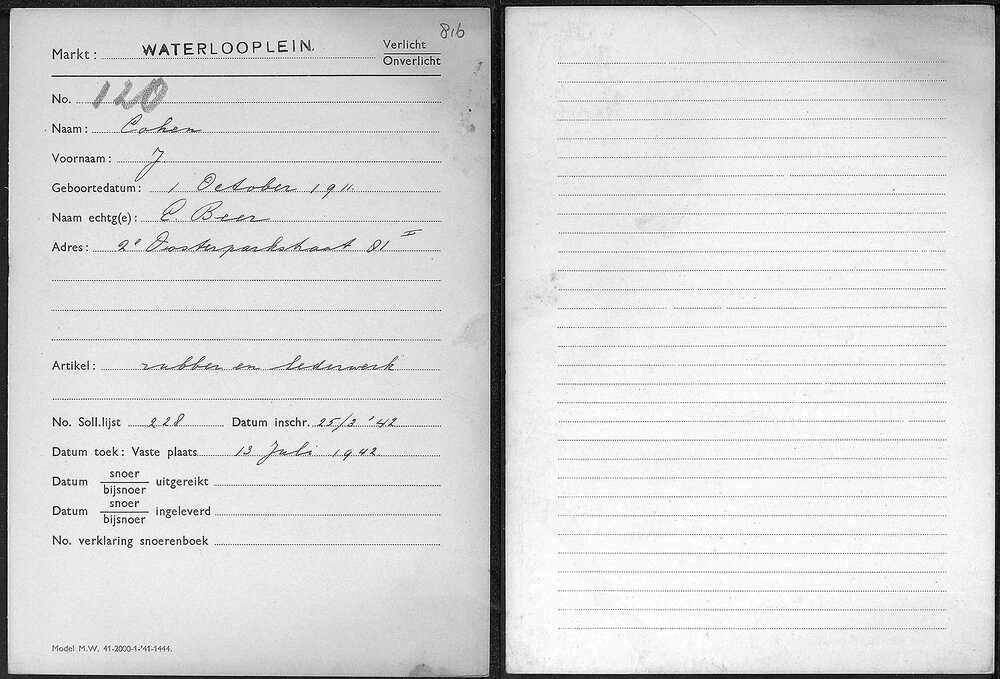 816
Markt: WATERLOOPLEIN. Verlicht
Onverlicht
No. 120
Naam: Cohen
Voornaam: J
Geboortedatum: 1 October 1911.
Naam echtg(e): C. Beer
Adres: 2e Oosterparkstraat 81 I
Artikel: rubber en lederwerk
No. Soll.lijst 228 Datum inschr. 25/3 '42
Datum toek: Vaste plaats 13 Juli 1942.
Datum snoer/bijsnoer uitgereikt
Datum snoer/bijsnoer ingeleverd
No. verklaring snoerenboek
Model M.W. 41-2000-1-'41-1444.